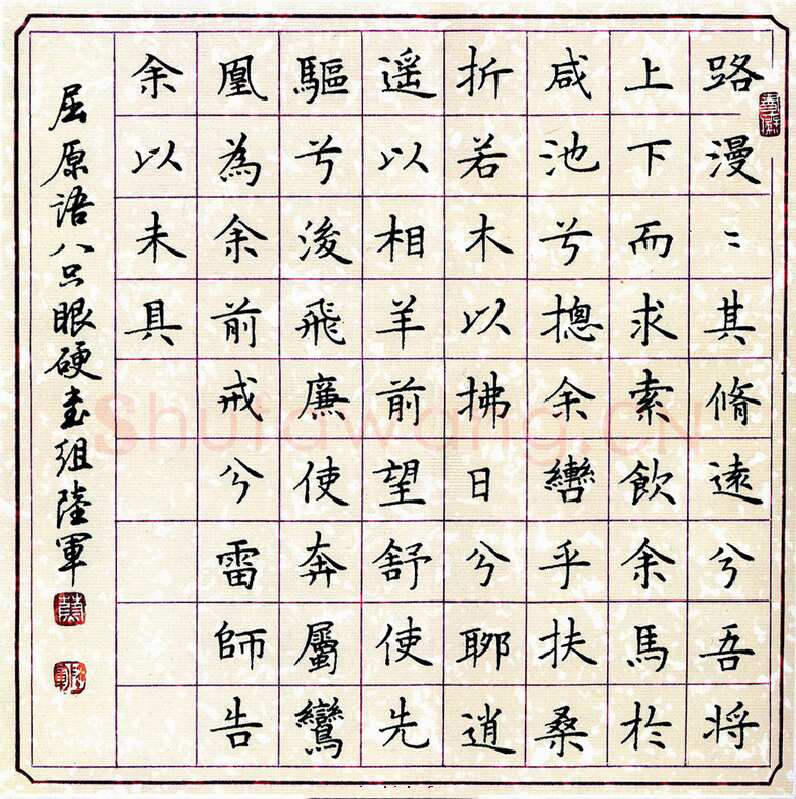 路漫〻其脩遠兮吾将
上下而求索飲余馬於
咸池兮摠余轡乎扶桑
折若木以拂日兮聊逍
遥以相羊前望舒使先
驅兮後飛廉使奔屬鸞
凰為余前戒兮雷師告
余以未具
屈原語八只眼硬书组陸軍
Shufawang.CN